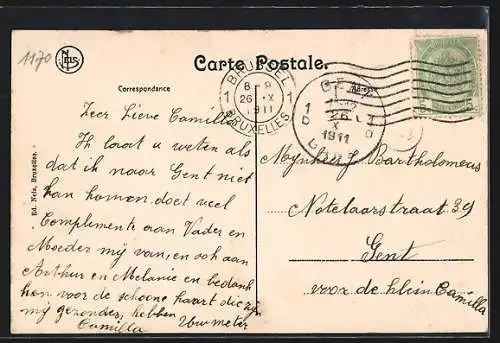 1170
NELS
Carte Postale.
Correspondance
Adresse
BRUSSEL
1 8-9 1
26 X
1911
BRUXELLES
GENT
1 D
26
X
1911
1 D
GAND
5 5
Zeer Lieve Camilla
Ik laat u weten als
dat ik naar Gent niet
kan komen. doet veel
Complimente aan Vader en
Moeder mij van. en ook aan
Arthur en Melanie en bedank
hen voor de schoone kaart die zij
mij gezonden hebben
Camilla Uw meter
Ed. Nels, Bruxelles.
Mijnheer J Bartholomeus
Notelaarstraat 39
Gent
voor de klein Camilla